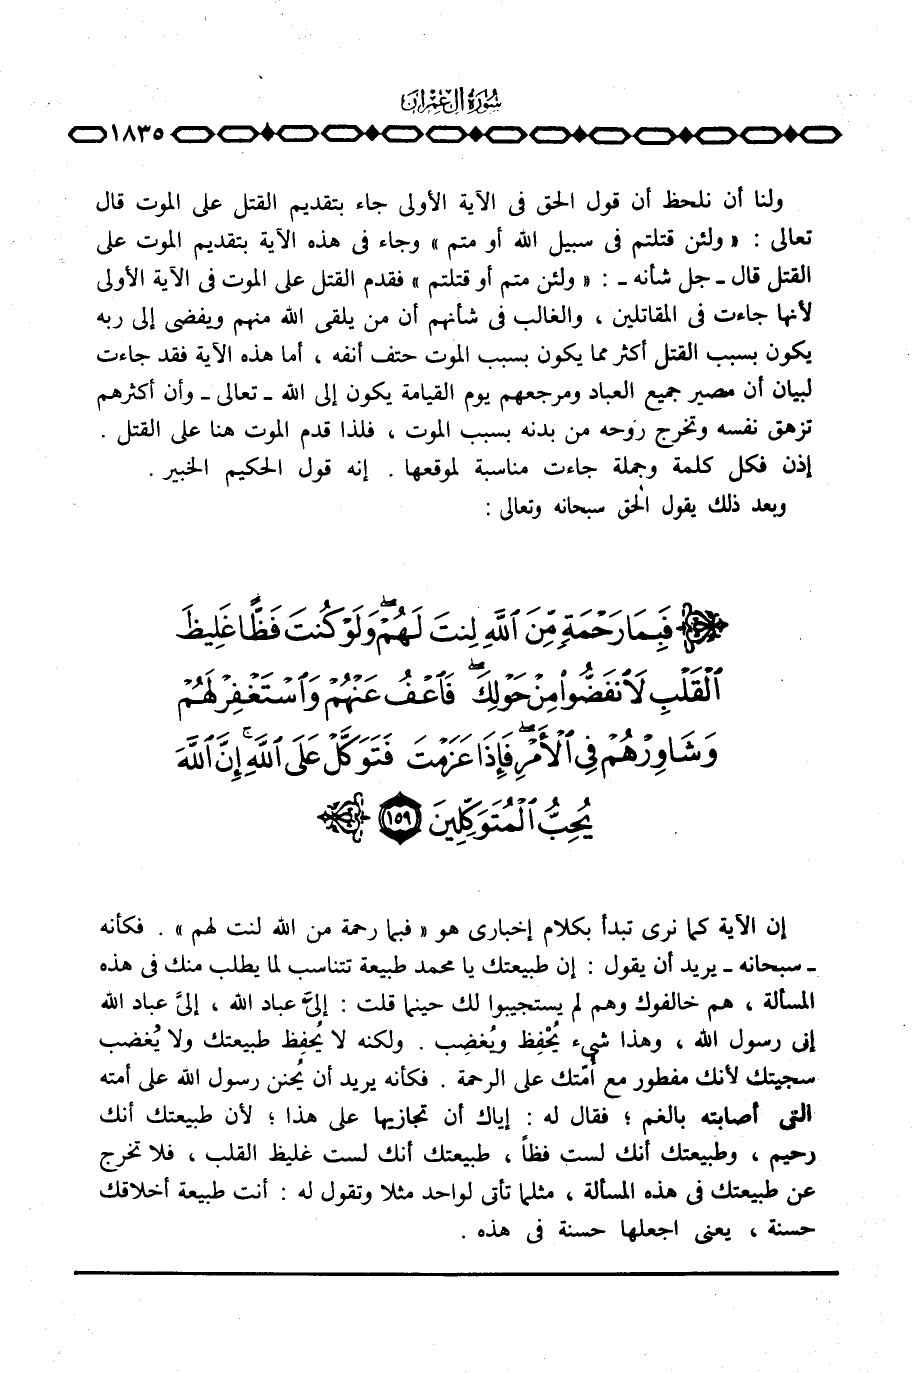 سورة آل عمران
١٨٣٥
ولنا أن نلحظ أن قول الحق فى الآية الأولى جاء بتقديم القتل على الموت قال
تعالى : « ولئن قتلتم فى سبيل الله أو متم » وجاء فى هذه الآية بتقديم الموت على
القتل قال ـ جل شأنه ـ : « ولئن متم أو قتلتم » فقدم القتل على الموت فى الآية الأولى
لأنها جاءت فى المقاتلين ، والغالب فى شأنهم أن من يلقى الله منهم ويفضى إلى ربه
يكون بسبب القتل أكثر مما يكون بسبب الموت حتف أنفه ، أما هذه الآية فقد جاءت
لبيان أن مصير جميع العباد ومرجعهم يوم القيامة يكون إلى الله ـ تعالى ـ وأن أكثرهم
تزهق نفسه وتخرج روحه من بدنه بسبب الموت ، فلذا قدم الموت هنا على القتل .
إذن فكل كلمة وجملة جاءت مناسبة لموقعها . إنه قول الحكيم الخبير .
وبعد ذلك يقول الحق سبحانه وتعالى :
فَبِمَا رَحْمَةٍ مِّنَ ٱللَّهِ لِنتَ لَهُمْ ۖ وَلَوْ كُنتَ فَظًّا غَلِيظَ
ٱلْقَلْبِ لَٱنفَضُّوا۟ مِنْ حَوْلِكَ ۖ فَٱعْفُ عَنْهُمْ وَٱسْتَغْفِرْ لَهُمْ
وَشَاوِرْهُمْ فِى ٱلْأَمْرِ ۖ فَإِذَا عَزَمْتَ فَتَوَكَّلْ عَلَى ٱللَّهِ ۚ إِنَّ ٱللَّهَ
يُحِبُّ ٱلْمُتَوَكِّلِينَ ١٥٩
إن الآية كما نرى تبدأ بكلام إخبارى هو « فبما رحمة من الله لنت لهم » . فكأنه
ـ سبحانه ـ يريد أن يقول : إن طبيعتك يا محمد طبيعة تتناسب لما يطلب منك فى هذه
المسألة ، هم خالفوك وهم لم يستجيبوا لك حينما قلت : إلىَّ عباد الله ، إلىَّ عباد الله
إنى رسول الله ، وهذا شىء يُحْفِظ ويُغضِب . ولكنه لا يُحفِظ طبيعتك ولا يُغضب
سجيتك لأنك مفطور مع أُمّتك على الرحمة . فكأنه يريد أن يُحنن رسول الله على أمته
التى أصابته بالغم ؛ فقال له : إياك أن تجازيها على هذا ؛ لأن طبيعتك أنك
رحيم ، وطبيعتك أنك لست فظاً ، طبيعتك أنك لست غليظ القلب ، فلا تخرج
عن طبيعتك فى هذه المسألة ، مثلما تأتى لواحد مثلا وتقول له : أنت طبيعة أخلاقك
حسنة ، يعنى اجعلها حسنة فى هذه .